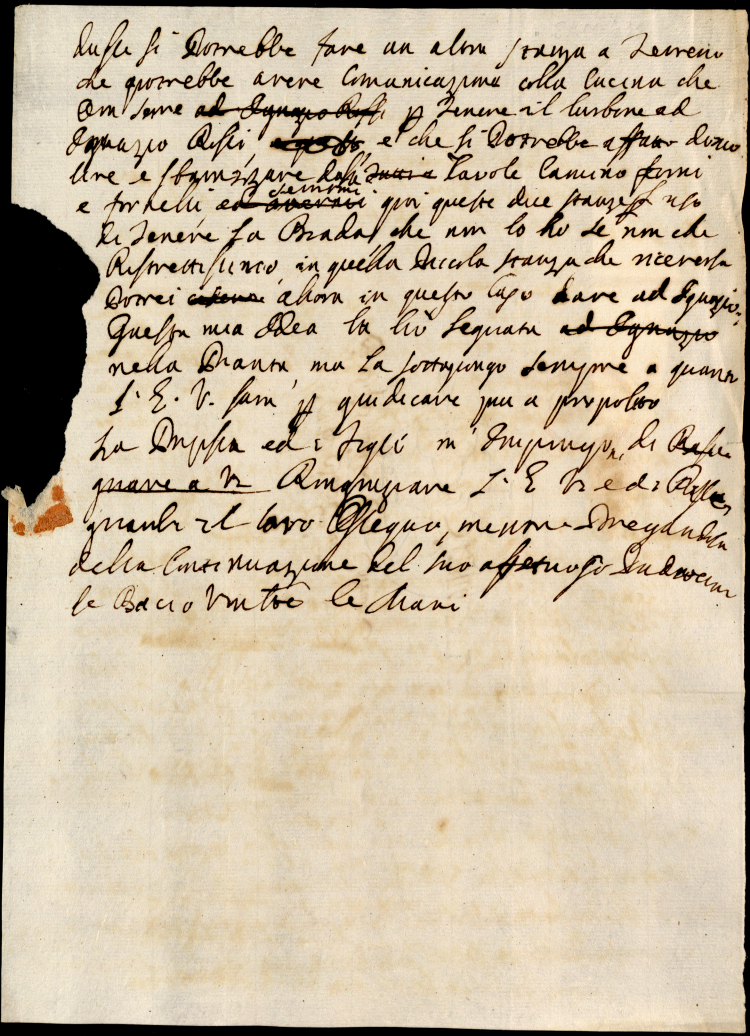 si Dovrebbe fare un altra stanza a Terreno
che potrebbe avere Comunicazione colla Cucina che
ora serve ad Ignazio Rossi p tenere il Carbone ad
Ignazio Rossi, e che si Dovrebbe affatto
e Tavole Camino forni
e fornelli servirmi qui queste due stanze p uso
di tenere la Biada, che non lo ho se non che
Ristrettissimo, in quella Piccola stanza che viceversa
Dovrei allora in questo Caso dare ad Ignazio:
Questa mia Idea la hò Segnata ad Ignazio
nella Pianta ma La sottopongo sempre a quanto
l'E. V. sarà p giudicare piu a proposito
La ed i figli m'impongon, di
gnare a V. Ringraziare l'E V. ed i
il loro Ossequio, mentre Pregandola
della Continuazione del suo affettuoso
le Bacio le Mani